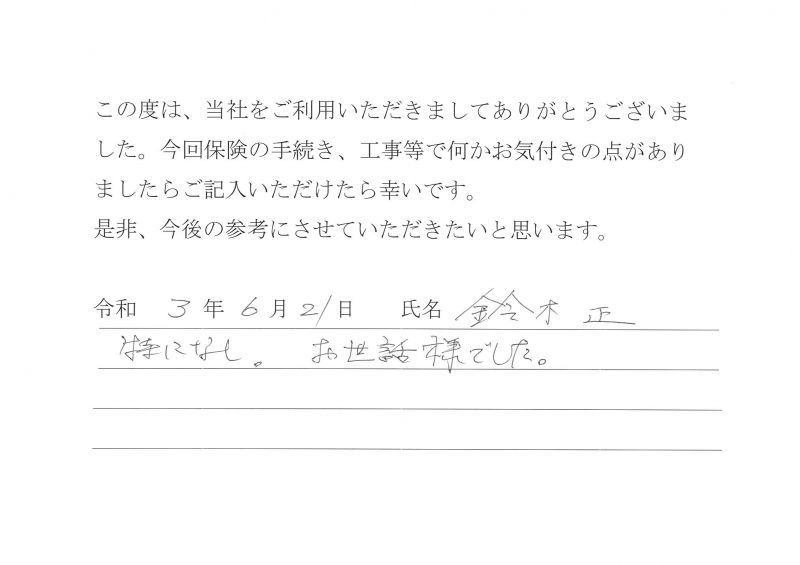 この度は、当社をご利用いただきましてありがとうございま
した。今回保険の手続き、工事等で何かお気付きの点があり
ましたらご記入いただけたら幸いです。
是非、今後の参考にさせていただきたいと思います。
令和 3 年 6 月 21 日 氏名 鈴木 正
特になし。 お世話様でした。